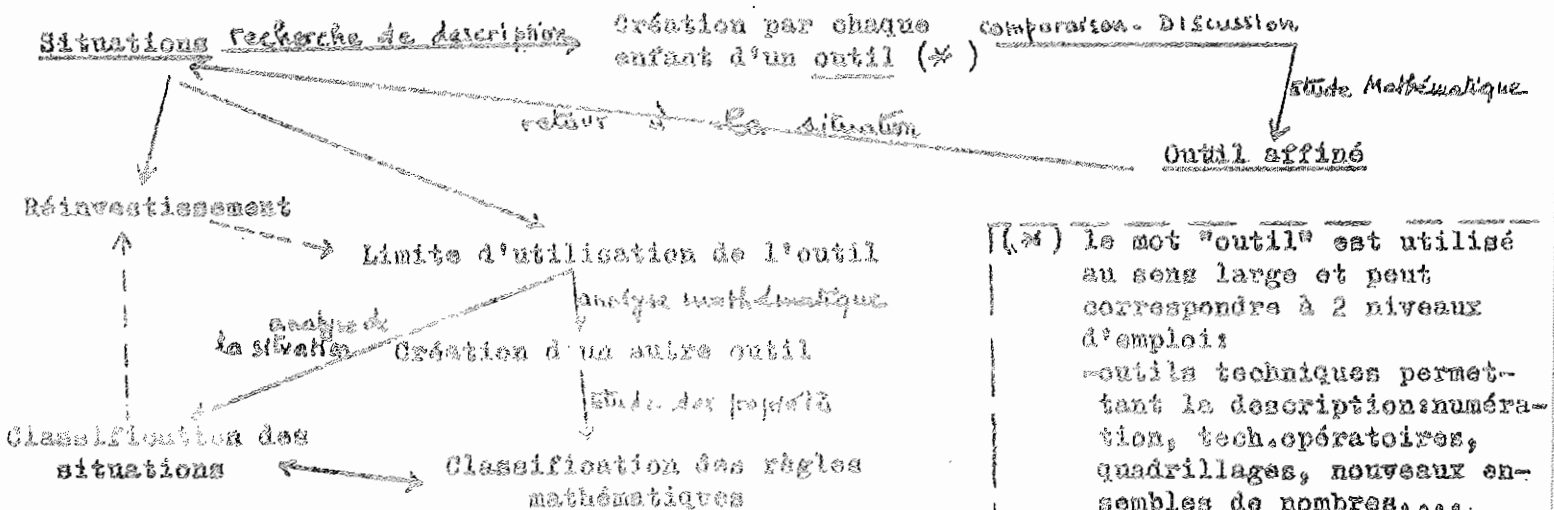 Situations recherche de description Création par chaque
enfant d'un outil (*)
Comparaison - Discussion
étude Mathématique
retour à la situation
Outil affiné
Réinvestissement
Limite d'utilisation de l'outil
analyse mathématique
analyse de
la situation
Création d'un autre outil
étude des propriétés
Classification des
situations
Classification des règles
mathématiques
(*) le mot "outil" est utilisé
au sens large et peut
correspondre à 2 niveaux
d'emplois
-outils techniques permet-
tant la description:numéra-
tion, tech.opératoires,
quadrillages, nouveaux en-
sembles de nombres....